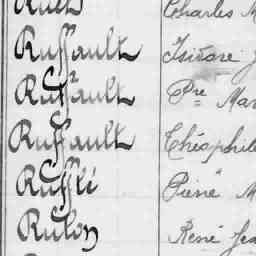 Charles M
Ruffault Isidore J
Ruffault Pre Mar
Ruffault Théophile
Ruffli Pierre M
Rulon René Jea